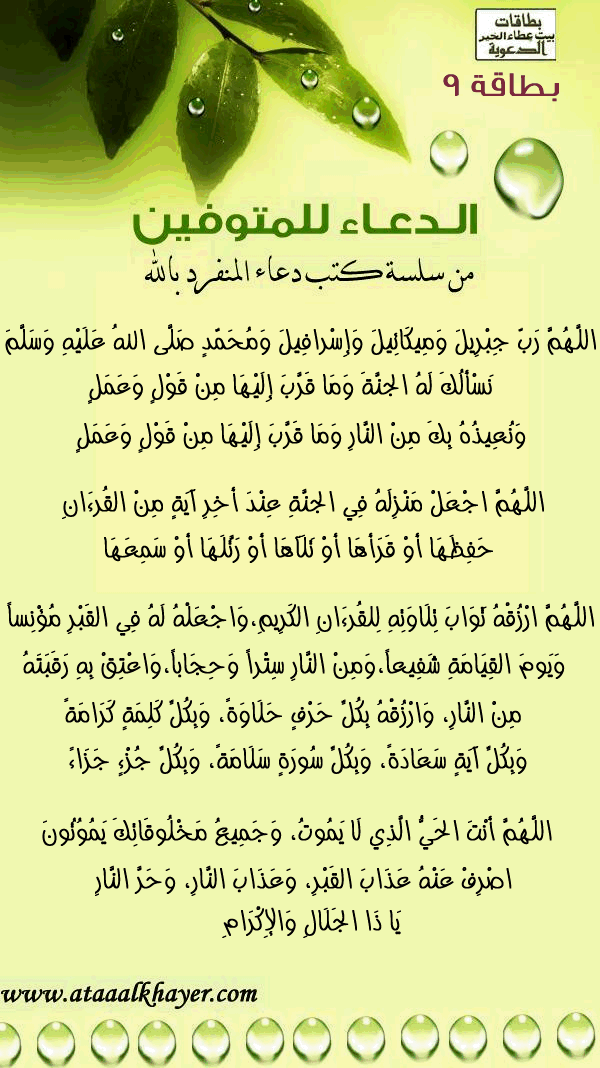 بطاقات
بيت عطاء الخير
الدعوية
بطاقة ٩
الدعاء للمتوفين
من سلسة كتب دعاء المنفرد بالله
اللَّهُمَّ رَبَّ جِبْرِيلَ وَمِيكَائِيلَ وَإِسْرافِيلَ وَمُحَمَّدٍ صَلَّى اللهُ عَلَيْهِ وَسَلَّمَ
نَسْأَلُكَ لَهُ الجنَّةَ وَمَا قَرَّبَ إِلَيْهَا مِنْ قَوْلٍ وَعَمَلٍ
وَنُعِيذُهُ بِكَ مِنْ النَّارِ وَمَا قَرَّبَ إِلَيْهَا مِنْ قَوْلٍ وَعَمَلٍ
اللَّهُمَّ اجْعَلْ مَنْزِلَهُ فِي الجنَّةِ عِنْدَ أخِرِ آيَةٍ مِنْ القُرءَانِ
حَفِظَهَا أوْ قَرَأهَا أوْ تَلَآهَا أوْ رَتَّلَهَا أوْ سَمِعَهَا
اللَّهُمَّ ارْزُقْهُ ثَوَابَ تِلَاوَتِهِ لِلقُرءَانِ الكَرِيمِ،وَاجْعَلْهُ لَهُ فِي القَبْرِ مُؤْنِساً
وَيَومَ القِيَامَةِ شَفِيعاً،وَمِنْ النَّارِ سِتْراً وَحِجَاباً،وَاعْتِقْ بِهِ رَقَبَتَهُ
مِنْ النَّارِ، وَارْزُقْهُ بِكُلِّ حَرْفٍ حَلَاوَةً، وَبِكُلِّ كَلِمَةٍ كَرَامَةً
وَبِكُلِّ آيَةٍ سَعَادَةً، وَبِكُلِّ سُورَةٍ سَلَامَةً، وَبِكُلِّ جُزْءٍ جَزَاءً
اللَّهُمَّ أنْتَ الحَيُّ الَّذِي لَا يَمُوتُ، وَجَمِيعُ مَخْلُوقَاتِكَ يَمُوُتُونَ
اصْرِفْ عَنْهُ عَذَابَ القَبْرِ، وَعَذَابَ النَّارِ، وَحَرَّ النَّارِ
يَا ذَا الجَلَالِ وَالإِكْرَامِ
www.ataaalkhayer.com